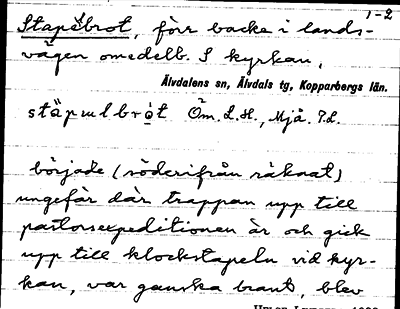 1-2
Stapëlbrot, förr backe i lands-
vägen omedelb. S kyrkan,
Älvdalens sn, Älvdals tg, Kopparbergs län.
Öm. L.H., Mjå. T.L.
började (söderifrån räknat)
ungefär där trappan upp till
pastorsexpeditionen är och gick
upp till klockstapeln vid kyr-
kan, var ganska brant, blev